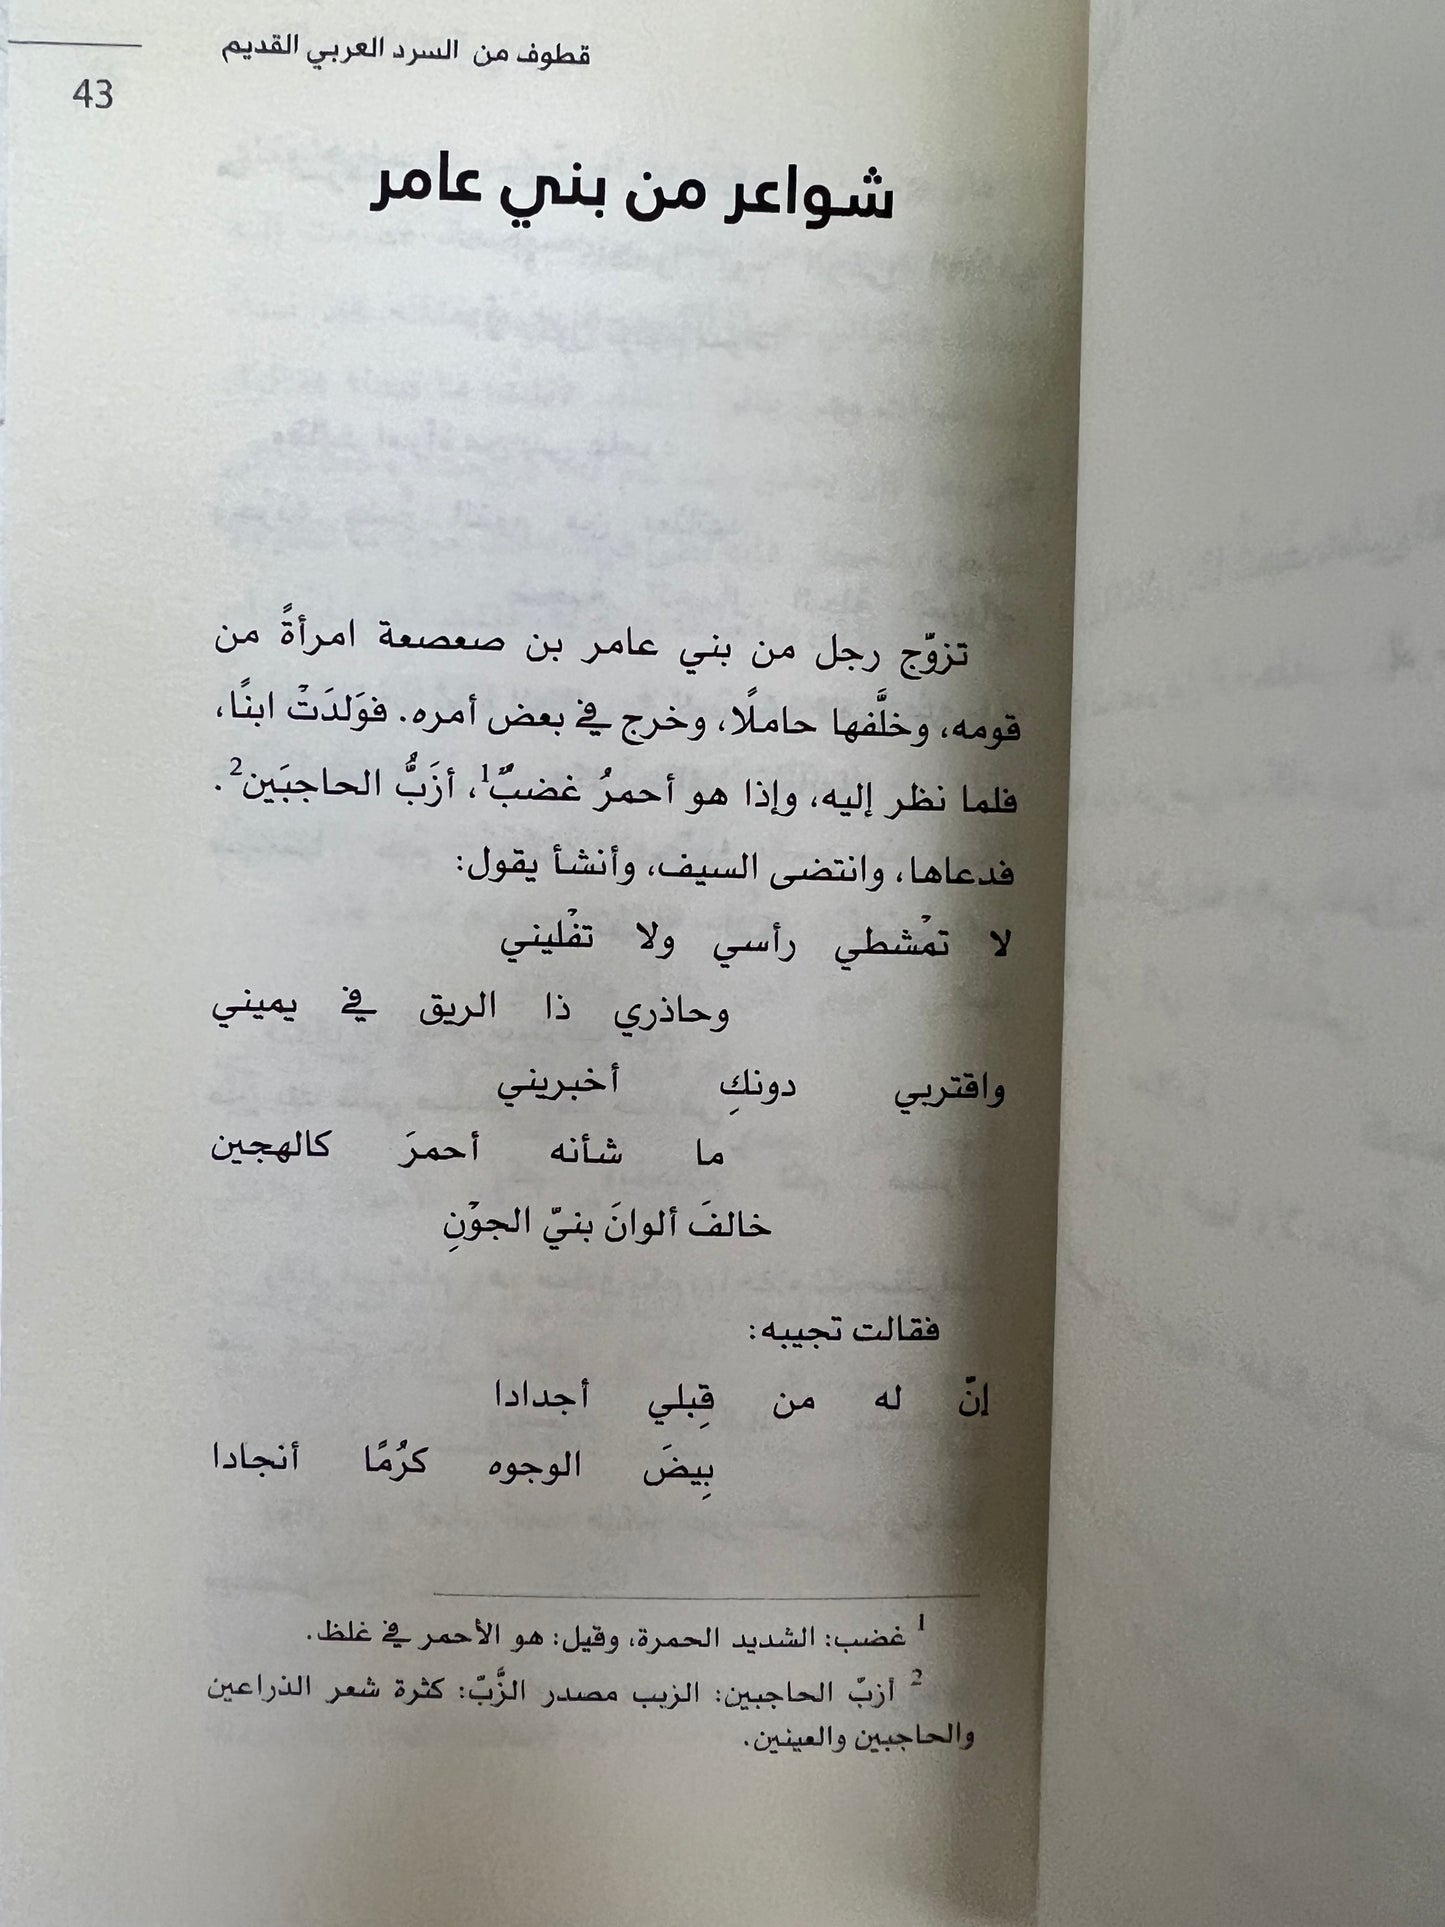 قطوف من السرد العربي القديم
43
شواعر من بني عامر
تزوّج رجل من بني عامر بن صعصعة امرأةً من
قومه، وخلَّفها حاملًا، وخرج في بعض أمره. فوَلدَتْ ابنًا،
فلما نظر إليه، وإذا هو أحمرُ غضبٌ1، أزَبُّ الحاجبَين2.
فدعاها، وانتضى السيف، وأنشأ يقول:
لا تمْشطي رأسي ولا تفْليني
وحاذري ذا الريق في يميني
واقتربي دونكِ أخبريني
ما شأنه أحمرَ كالهجين
خالفَ ألوانَ بنيّ الجوْنِ
فقالت تجيبه:
إنّ له من قِبلي أجدادا
بِيضَ الوجوه كرُمًا أنجادا
1 غضب: الشديد الحمرة، وقيل: هو الأحمر في غلظ.
2 أزبّ الحاجبين: الزبب مصدر الزَّبّ: كثرة شعر الذراعين
والحاجبين والعينين.